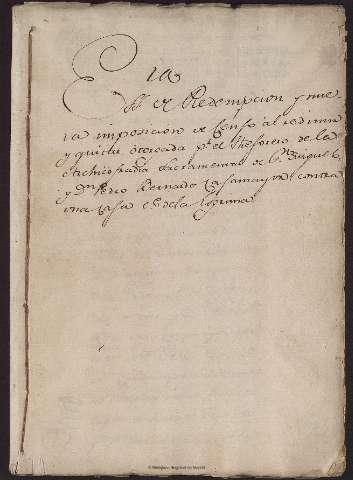 Ssª de Redempcion y nue-
va imposicion de Censo al redimir
y quitar otorgada pr. el thesorero de la
Archicofradia Sacramental de Sn. Miguel
y Dn. Pedro Bernardo Casamayor contra
una Casa Ce. de la
© Biblioteca Regional de Madrid